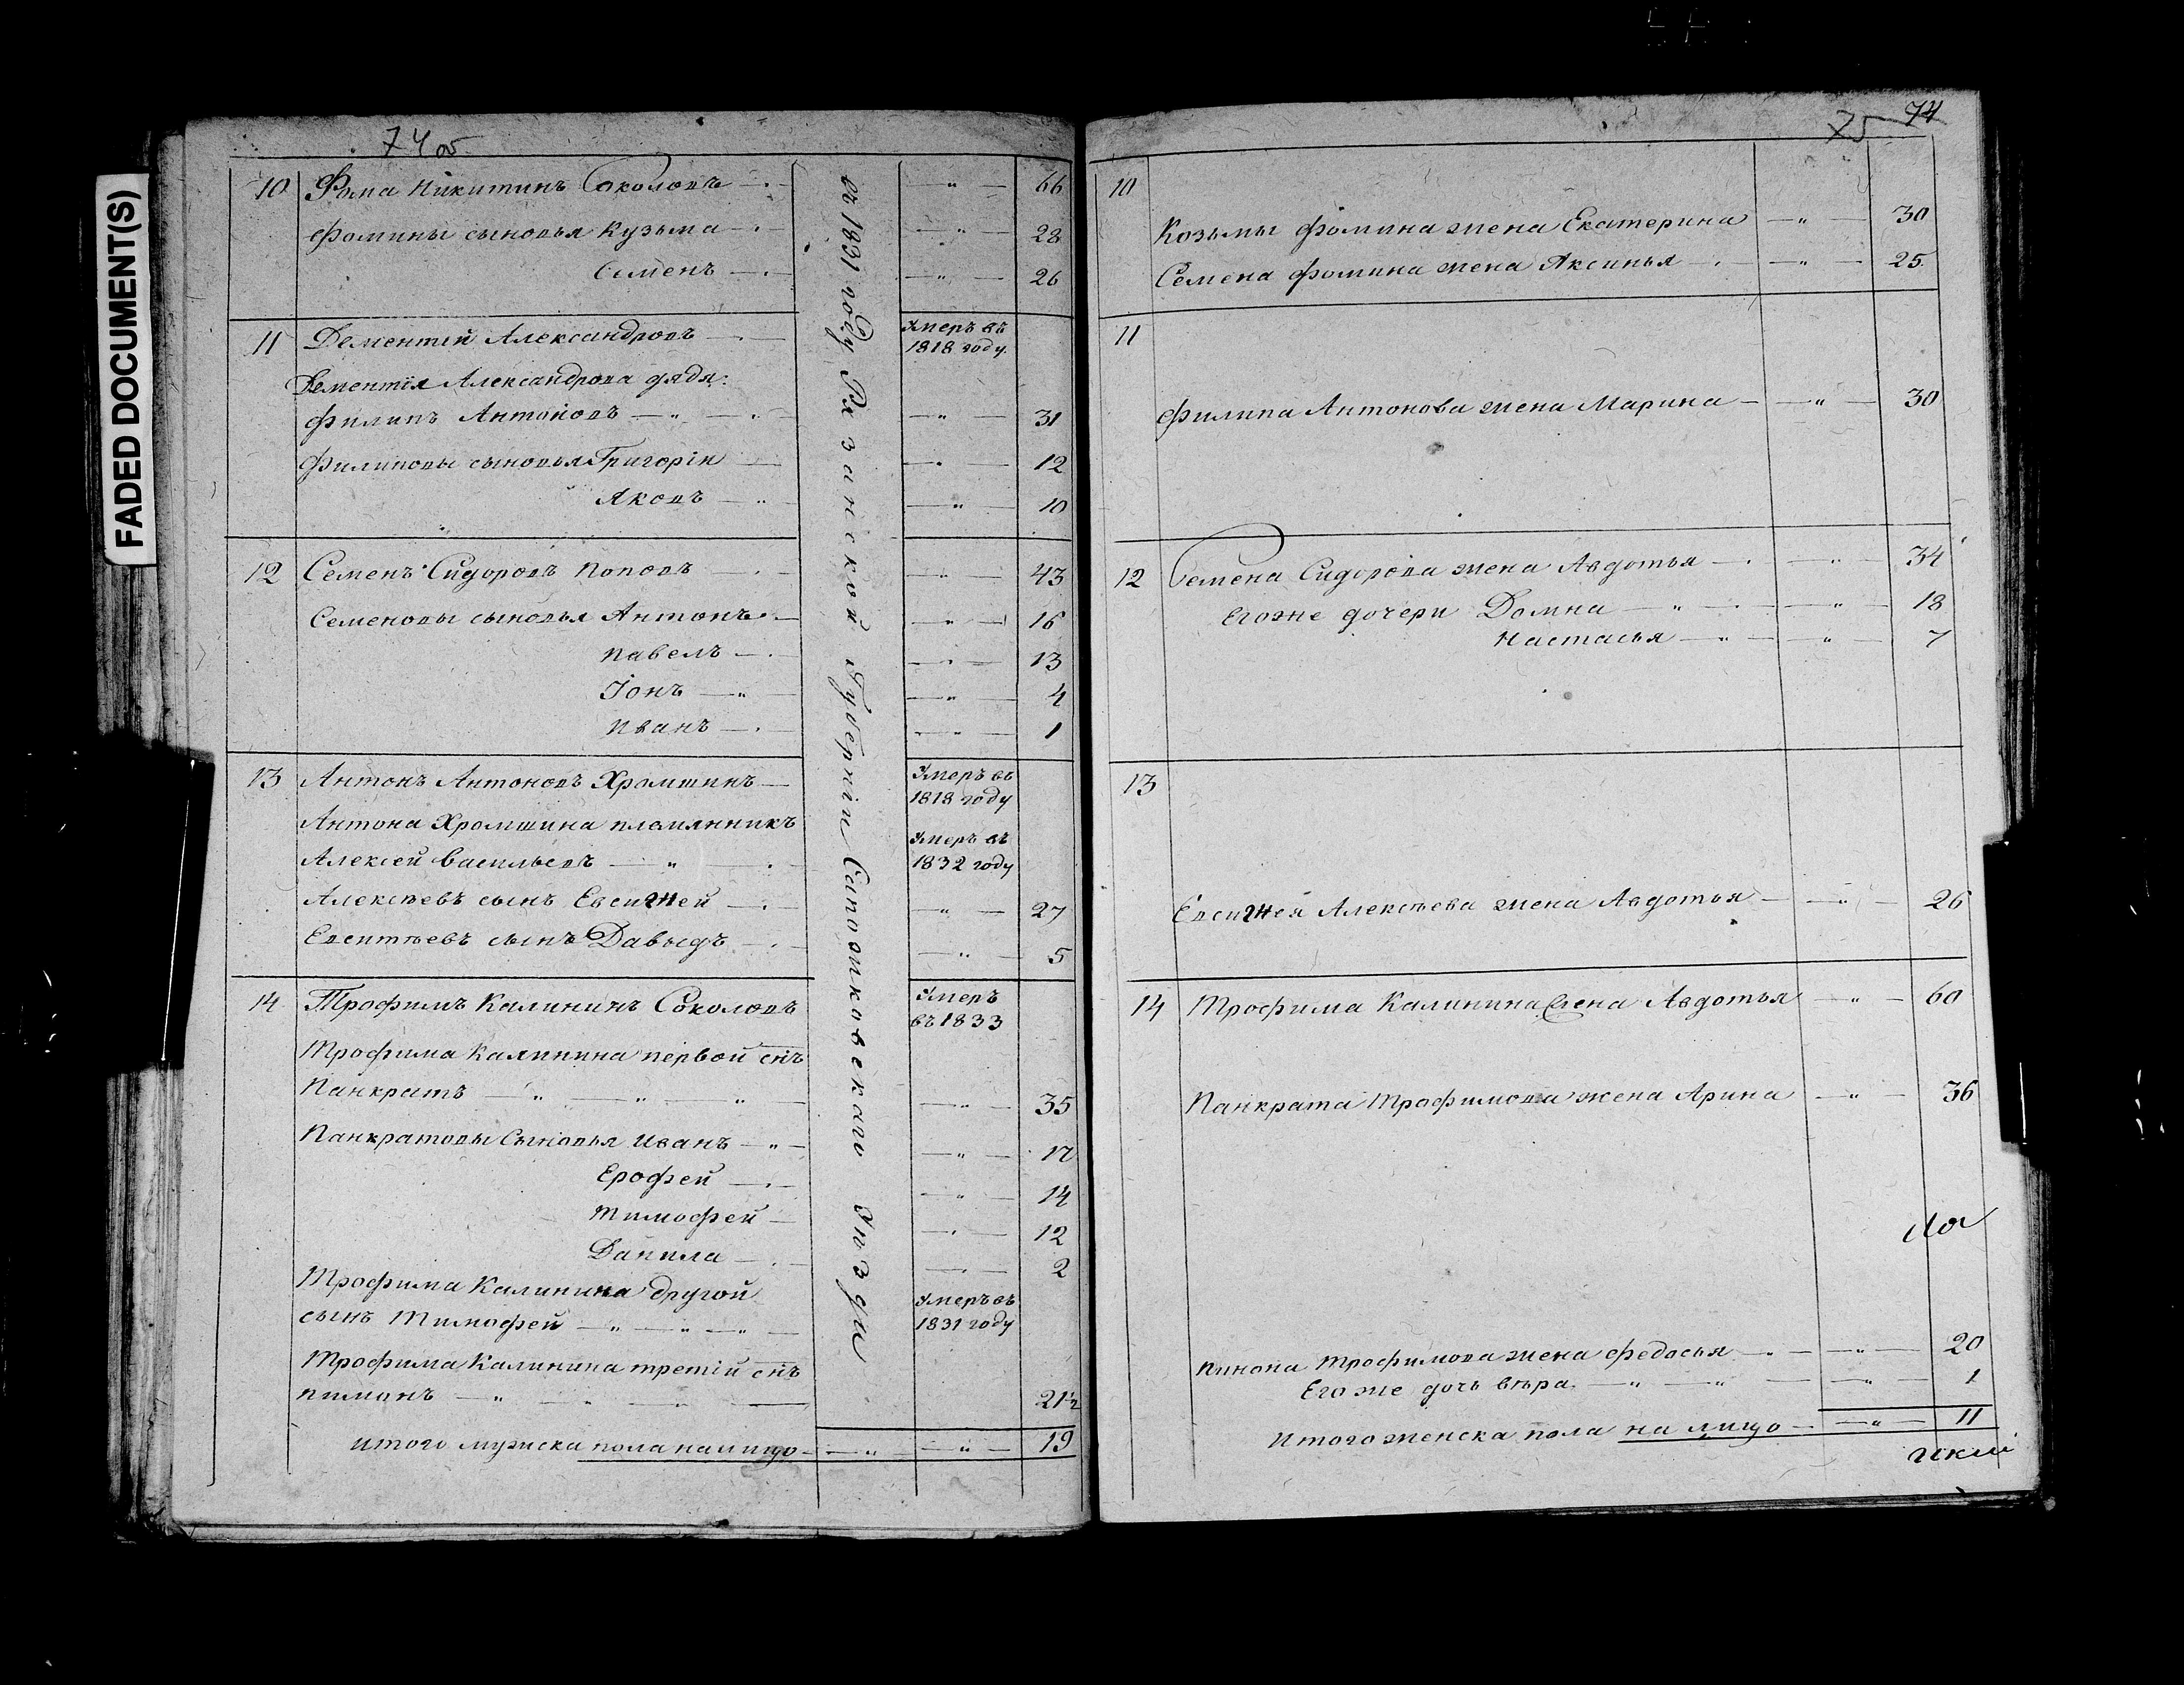 FADED DOCUMENT(S)
74 об
10 Фома Никитинъ Соколовъ — " — 66
Фомины сыновья Кузьма — " — 28
Семенъ — " — 26
11 Дементій Александровъ — умеръ въ
1818 году.
Дементія Александрова дядя:
Филипъ Антоновъ — " — 31
Филиповы сыновья Григорій — " — 12
Яковъ — " — 10
12 Семенъ Сидоровъ Поповъ — " — 43
Семеновы сыновья Антонъ — " — 16
Павелъ — " — 13
Іонъ — " — 4
Иванъ — " — 1
13 Антонъ Антоновъ Хромшинъ — Умеръ въ
1818 году
Антона Хромшина племянникъ
Алексей Васильевъ — " — умеръ въ
1832 году
Алексѣевъ сынъ Евсигней — " — 27
Евсигнѣевъ сынъ Давыдъ — " — 5
14 Трофимъ Калининъ Соколовъ Умеръ
въ 1833
Трофима Калинина первой снъ
Панкратъ — " — " — " — 35
Панкратовы Сыновья Иванъ — " — 17
Ерофей — " — 14
Тимофей — " — 12
Данила — " — 2
Трофима Калинина другой
сынъ Тимофей — " — " — " — умеръ въ
1831 году
Трофима Калинина третій снъ
Пимонъ — " — " — " — 21½
итого мужска пола налицо — " — " — 19
въ 1831 году Рязанской Губерніи Сапожковскаго Уѣзда
75 74
10
Козьмы Фомина жена Екатерина — " — 30
Семена Фомина жена Аксинья — " — 25
11
Филипа Антонова жена Марина — " — 30
12 Семена Сидорова жена Авдотья — " — 34
Егоже дочери Домна — " — " — 18
Настасья — " — " — 7
13
Евсигнея Алексѣева жена Авдотья — " — 26
14 Трофима Калинина жена Авдотья — " — 60
Панкрата Трофимова жена Арина — " — 36
Пимона Трофимова жена Федосья — " — 20
Его же дочь Вѣра — " — " — " — 1
Итого женска пола на лицо — " — 11